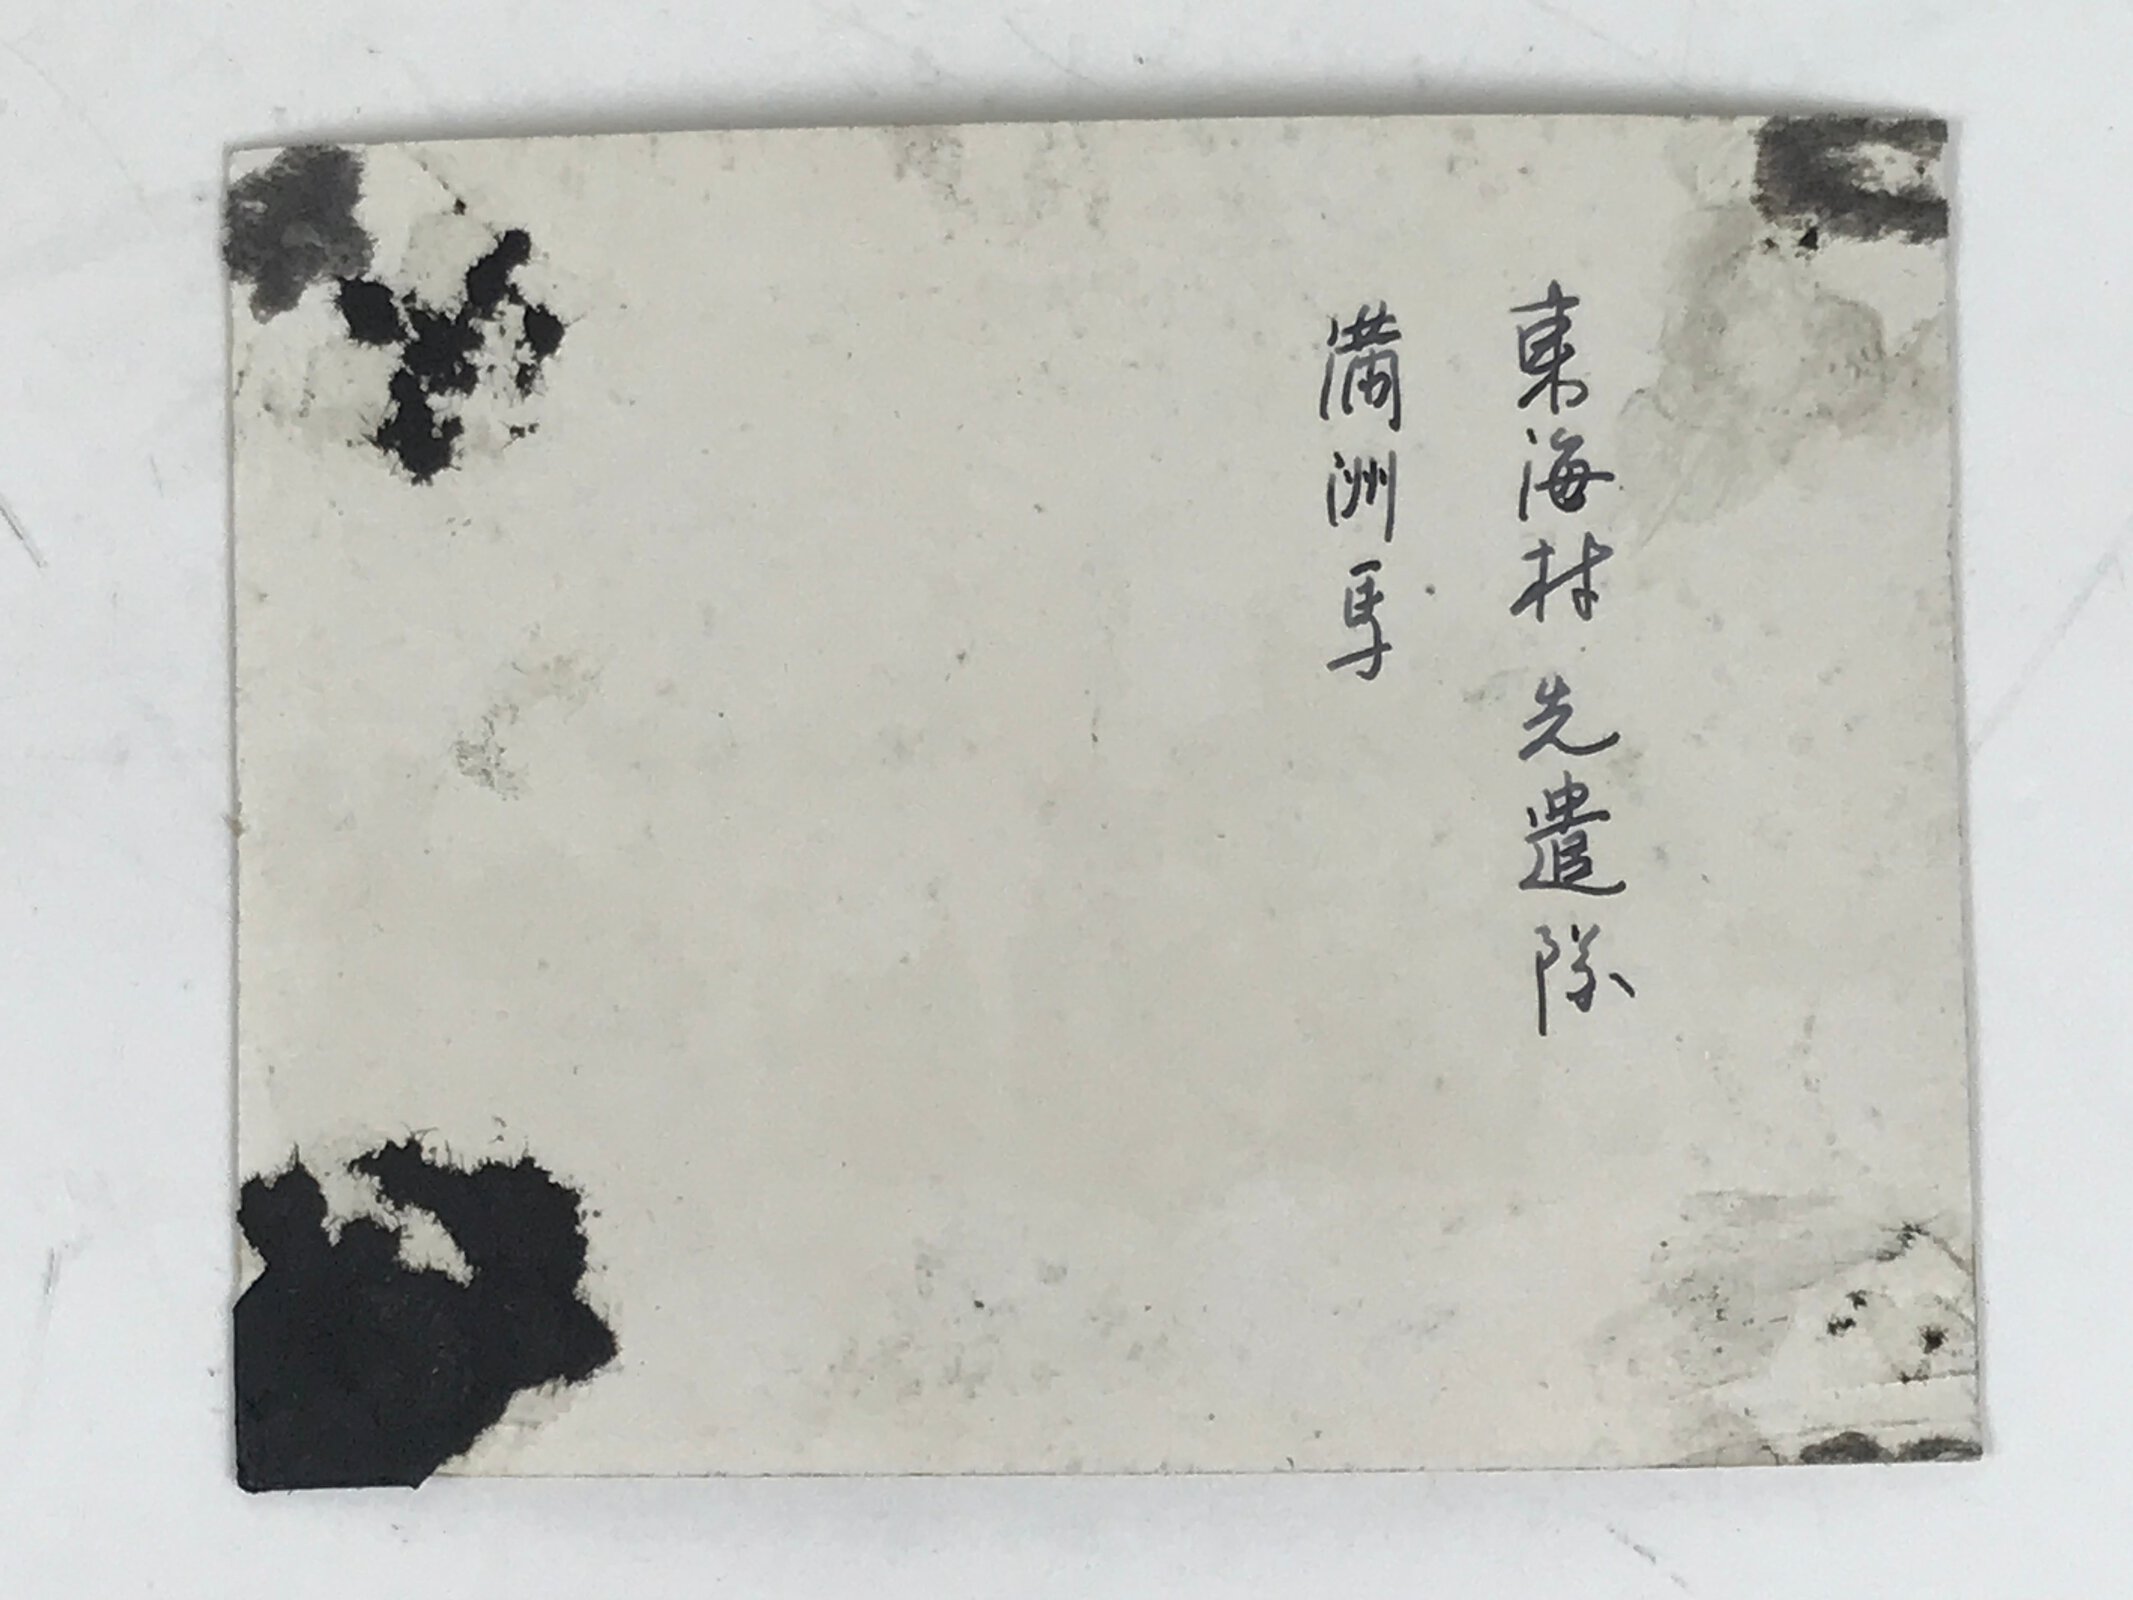 東海村 先遣隊
満洲馬